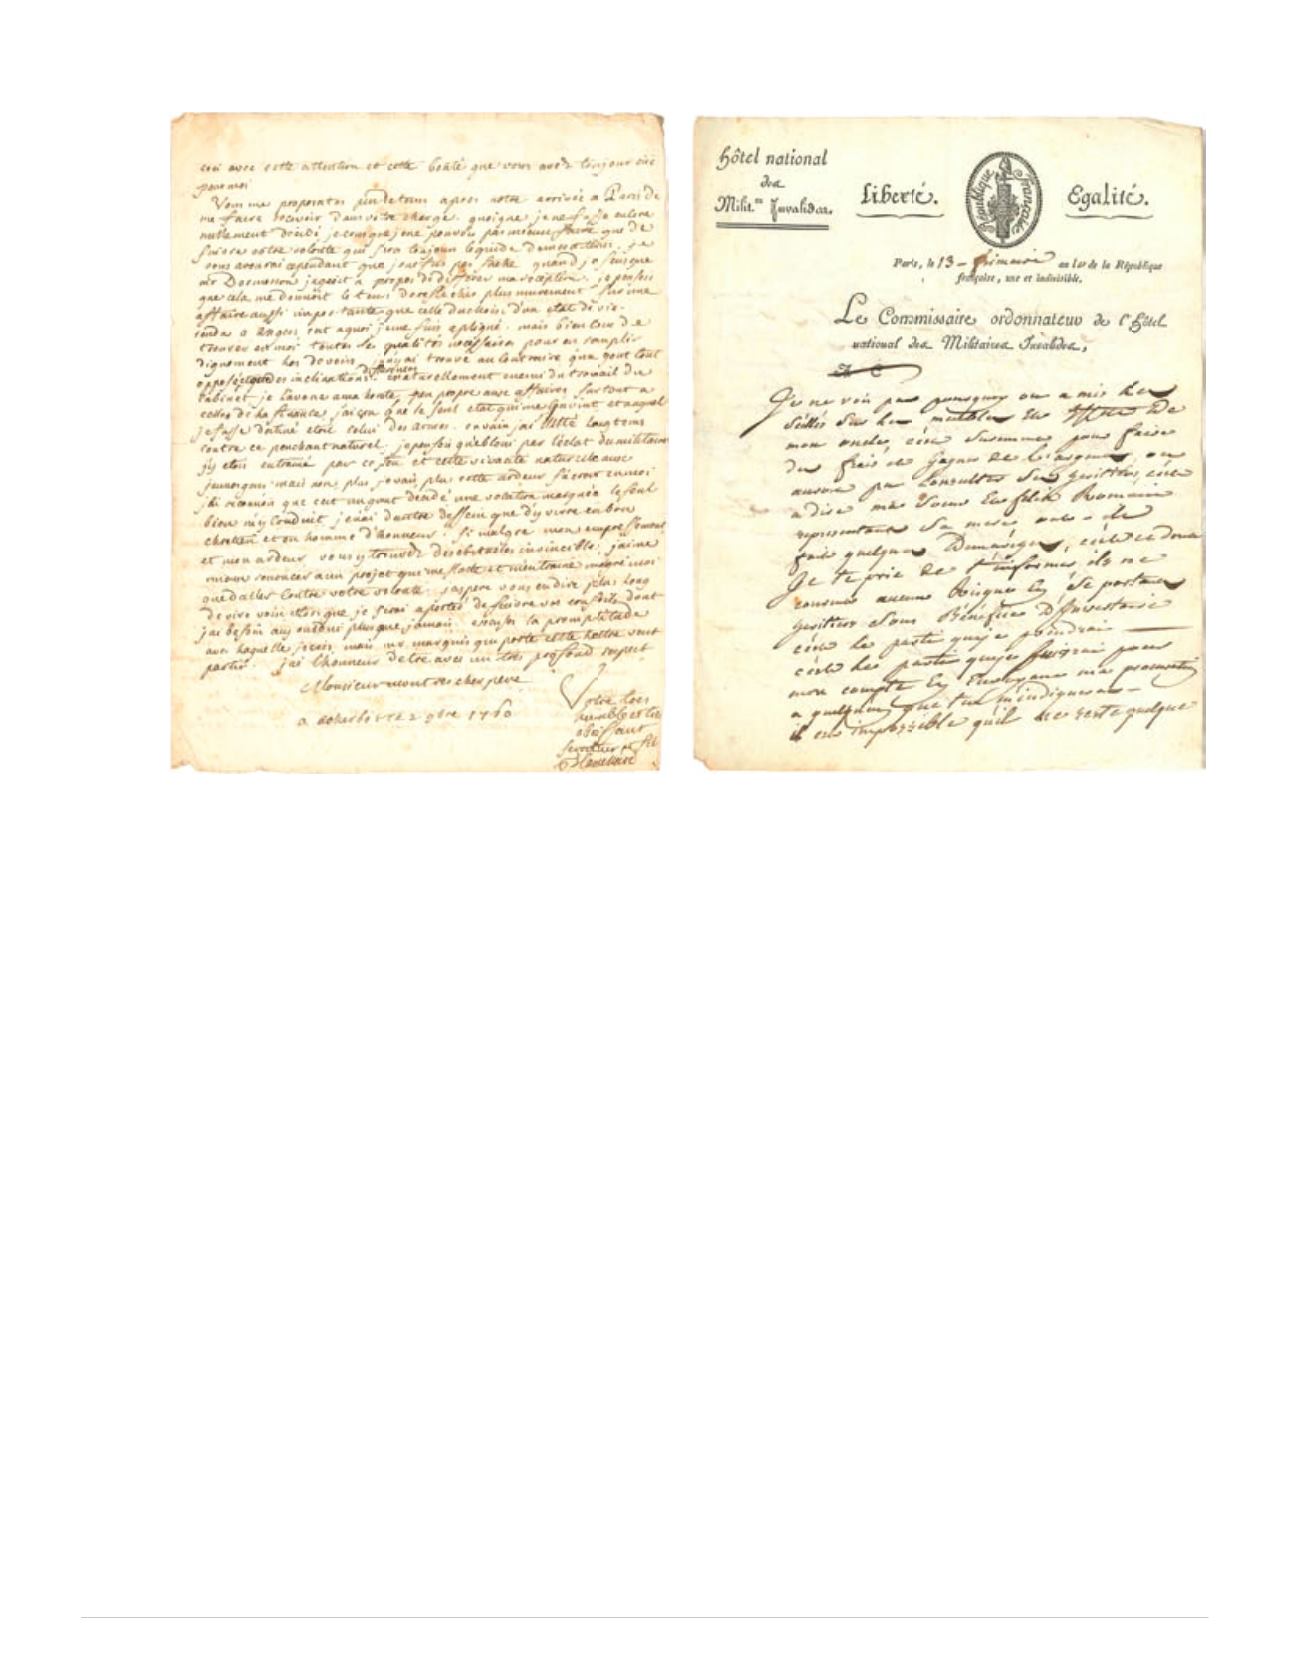 ceci avec cette attention et cette bonté que vous avez toujour eue
pour moi
Vous me proposates peu de tems apres notre arrivée a Paris de
me faire recevoir dans votre charge. quoique je ne fusse encore
nullement décidi je que je ne pouvou pas mieux faire que de
suivre votre volonté qui sera toujour le guide de mes actions. je
vous avourai cependant que je ne fus pas faché quand je sus que
mr Dormesson jugeoit a propos de differer ma reception. je pensois
que cela me donneroit le tems de reflechir plus murement sur une
affaire aussi importante que celle du choix d'un etat de vie.
a angers cet a quoi je me suis apliqué. mais bien loin de
trouver en moi toutes les qualités necessaires pour en remplir
dignement les devoirs, j'y ai trouvé au contraire qu'un gout tout
opposé des inclinations differentes. naturellement enemi du travail du
cabinet je l'avoue a ma honte, peu propre aux affaires surtout a
celles de la finance, j'ai cru que le seul etat qui me convint et auquel
je fusse destiné etoit celui des armes. en vain j'ai lutté longtems
contre ce penchant naturel. je pensois qu'ebloui par l'éclat du militaire
j'y etois entrainé par ce feu et cette vivacité naturelle aux
jeunes gens. mais non, plus je vais plus cette ardeur s'acroit en moi
j'ai reconnu que cet un gout décidé une vocation marquée le seul
bien m'y conduit, je n'ai d'autre dessein que d'y vivre en bon
chretien et en homme d'honneur. si malgré mon empressement
et mon ardeur vous y trouvez des obstacles invincible, j'aime
mieux renoncer a un projet qui me flatte et m'entraine malgré moi
que d'aller contre votre volonté. j'aspere vous en dire plus long
de vive voix alors que je serai a portée de suivre vos conseils dont
j'ai besoin aujourdhui plus que jamais. excusez la promptitude
avec laquelle j'ecris, mais mr. marquis qui porte cette lettre veut
partir. j'ai l'honneur d'etre avec un tres profond respect
Monsieur mon tres cher pere
Votre tres
a ce 2 9bre 1760
humble et tres
obeissant
serviteur et fils
Hôtel national
des
Milit.res Invalides.
Liberté.
République Française
Egalité.
Paris, le 13 - frimaire an 1er de la République
française, une et indivisible.
Le Commissaire ordonnateur de l'Hôtel
national des Militaires Invalides,
Je ne vois pas pourquoy on a mis les
scellés sur les meubles et effets de
mon oncle, c'est surement pour faire
des frais et gagner de l'argent, on
auroit pu consulter ses heritiers, c'est
a dire ma soeur et felix Romain
representant sa mere
fait quelques Demarches, c'est ce dont
Je te prie de t'informer, ils ne
courent aucuns Risques En se portant
heritiers sous Bénéfice d'Inventaire
c'est le parti que je prendrai
c'est le parti que je suivrai pour
mon compte En Envoyant ma procuration
a quelqu'un que tu m'indiqueras -
il est impossible qu'il ne reste quelque